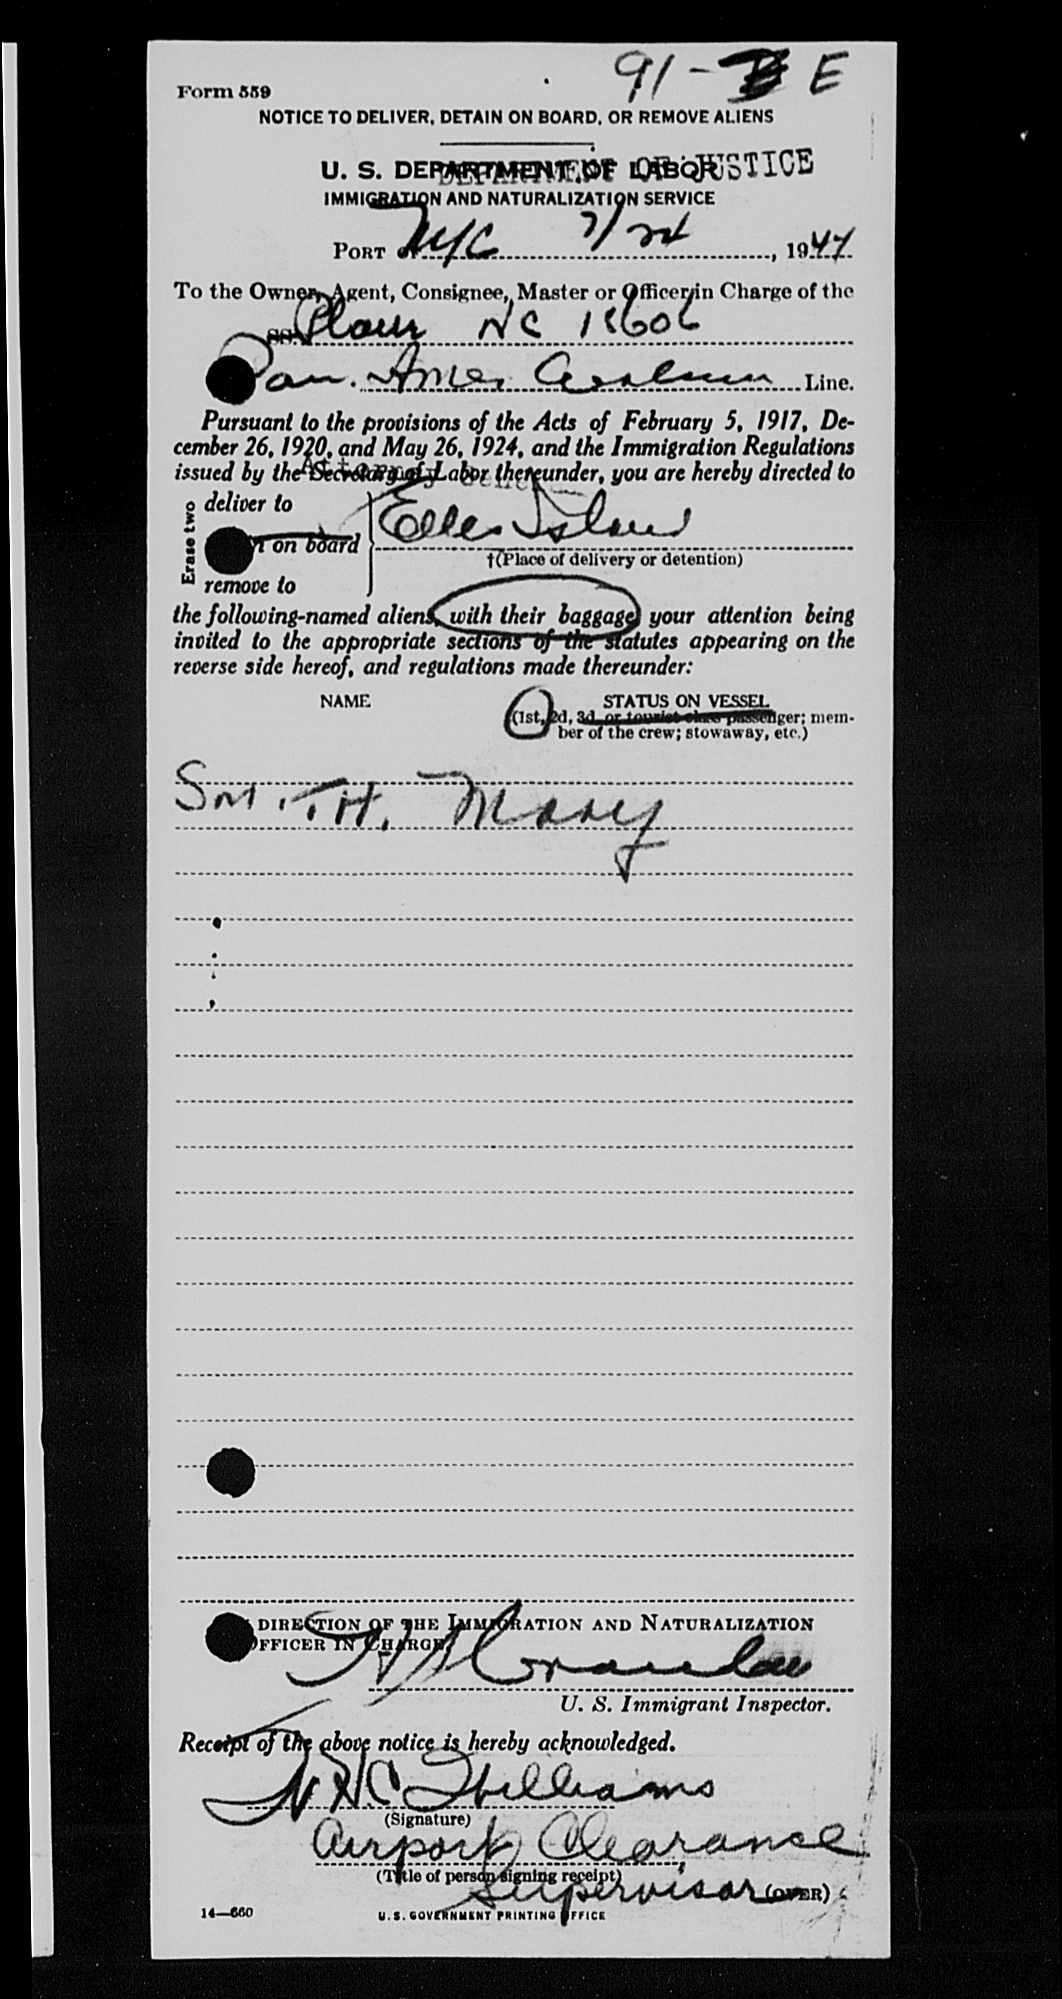 91 - E
Form 559
NOTICE TO DELIVER, DETAIN ON BOARD, OR REMOVE ALIENS
U. S. DEPARTMENT OF LABOR
DEPARTMENT OF JUSTICE
IMMIGRATION AND NATURALIZATION SERVICE
PORT of NYC 7/24, 1947
To the Owner, Agent, Consignee, Master or Officer in Charge of the
SS. Plane NC 18606
Pan. Amer Line.
Pursuant to the provisions of the Acts of February 5, 1917, De-
cember 26, 1920, and May 26, 1924, and the Immigration Regulations
issued by the Secretary of Labor thereunder, you are hereby directed to
Attorney General
Erase two
deliver to
on board
remove to
Ellis Island
†(Place of delivery or detention)
the following-named aliens, with their baggage, your attention being
invited to the appropriate sections of the statutes appearing on the
reverse side hereof, and regulations made thereunder:
NAME
STATUS ON VESSEL
(1st, 2d, 3d, or tourist class passenger; mem-
ber of the crew; stowaway, etc.)
SMITH, Mary
DIRECTION OF THE IMMIGRATION AND NATURALIZATION
OFFICER IN CHARGE
U. S. Immigrant Inspector.
Receipt of the above notice is hereby acknowledged.
Williams
(Signature)
Airport Clearance
(Title of person signing receipt)
Supervisor
(OVER)
14—660
U. S. GOVERNMENT PRINTING OFFICE